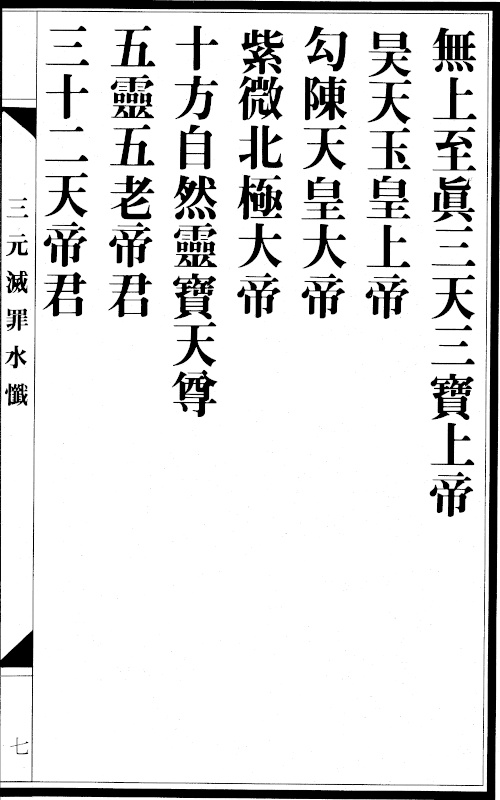 無上至眞三天三寶上帝
昊天玉皇上帝
勾陳天皇大帝
紫微北極大帝
十方自然靈寶天尊
五靈五老帝君
三十二天帝君
三元滅罪水懺
七